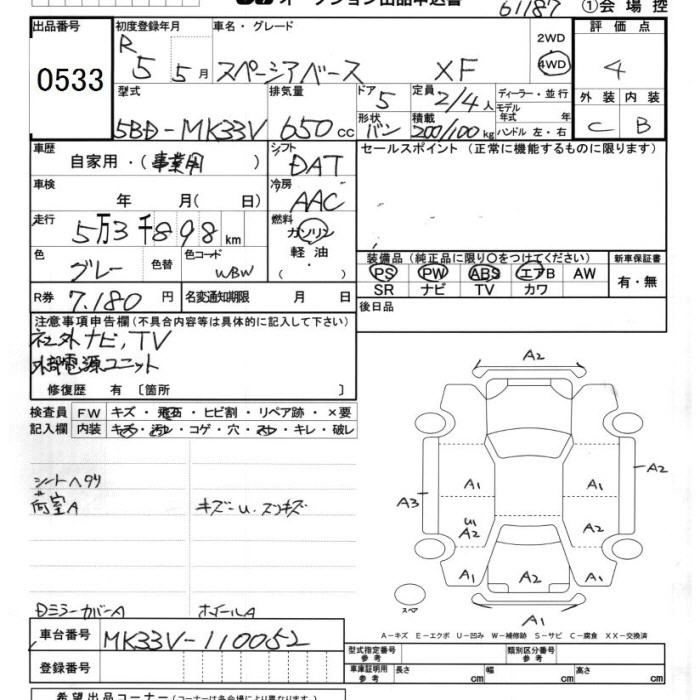 オークション出品申込書 61187 ①会場控
出品番号 初度登録年月 車名・グレード 2WD 評価点
0533 R5 5月 スペーシアベース XF 4WD 4
型式 排気量 ドア 5 定員 2/4人 ディーラー・並行 外装 内装
モデル年式 年
5BD-MK33V 650cc 形状 バン 積載 200/100kg ハンドル 左・右 C B
車歴 自家用・(事業用) シフト DAT セールスポイント(正常に機能するものに限ります)
車検 年 月( 日) 冷房 AAC
走行 5万3千898km 燃料 ガソリン
軽油
・( )
装備品(純正品に限り〇をつけてください) 新車保証書
色 グレー 色替 色コード WBW PS PW ABS エアB AW 有・無
SR ナビ TV カワ
R券 7.180円 名変通知期限 月 日 後日品
注意事項申告欄(不具合内容等は具体的に記入して下さい)
社外ナビ,TV
外部電源ユニット
修復歴 有〔箇所 〕
検査員 FW キズ・飛石・ヒビ割・リペア跡・×要
記入欄 内装 キズ・汚れ・コゲ・穴・スレ・キレ・破レ
シートヘタリ
荷室A キズ=u.スリキズ
Dミラーカバー A ホイールA
A2
A1 A1 A2
A3
U1
A2 A2
A1 A2 A1
A1
スペア
A-キズ E-エクボ U-凹み W-補修跡 S-サビ C-腐食 XX-交換済
車台番号 MK33V-110052
型式指定番号 参考 類別区分番号 参考
登録番号 車庫証明用 参考 長さ cm 幅 cm 高さ cm
希望出品コーナー(コーナーは各会場により異なります。)